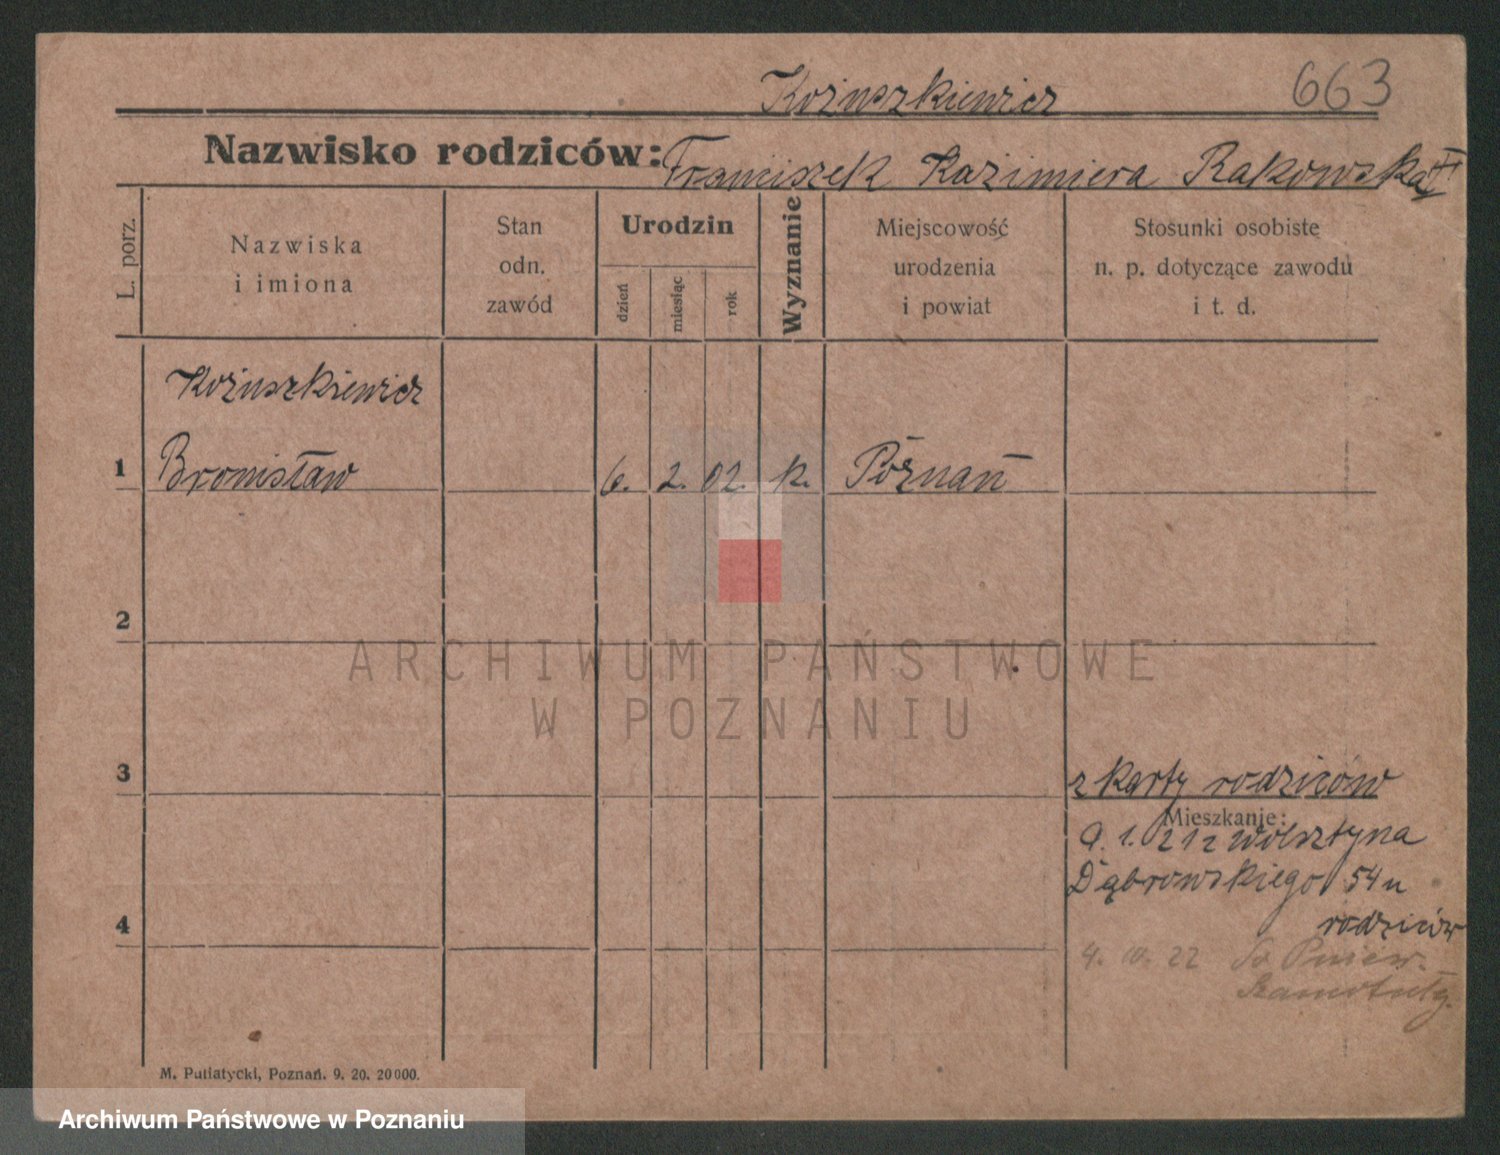 Kożuszkiewicz 663
Nazwisko rodziców: Franciszek Kazimiera Rakowska
L. porz.
Nazwiska
i imiona
Stan
odn.
zawód
Urodzin
dzień
miesiąc
rok
Wyznanie
Miejscowość
urodzenia
i powiat
Stosunki osobiste
n. p. dotyczące zawodu
i t. d.
Kożuszkiewicz
1 Bronisław 6. 2. 02. k. Poznań
2
ARCHIWUM PAŃSTWOWE
W POZNANIU
3
z karty rodziców
Mieszkanie:
9. 1. 21 z Wolsztyna
Dąbrowskiego 54 u
4
rodziców
4. 22 Do Pniew.
M. Putiatycki, Poznań. 9. 20. 20000.
Archiwum Państwowe w Poznaniu